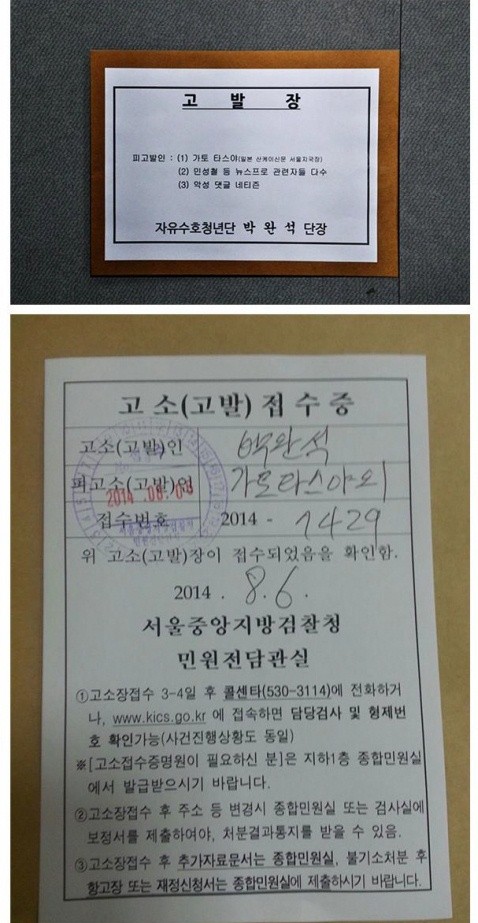 고 발 장
피고발인 : (1) 가토 타스야(일본 산케이신문 서울지국장)
(2) 민성철 등 뉴스프로 관련자들 다수
(3) 악성 댓글 네티즌
자유수호청년단 박 완 석 단장
고소(고발)접수증
고소(고발)인 박완석
피고소(고발)인 가토타스야 외
2014 .08.06
접수번호 2014 - 7429
위 고소(고발)장이 접수되었음을 확인함.
2014 . 8. 6.
서울중앙지방검찰청
민원전담관실
①고소장접수 3-4일 후 콜센타(530-3114)에 전화하거
나, www.kics.go.kr 에 접속하면 담당검사 및 형제번
호 확인가능(사건진행상황도 동일)
※[고소접수증명원이 필요하신 분]은 지하1층 종합민원실
에서 발급받으시기 바랍니다.
②고소장접수 후 주소 등 변경시 종합민원실 또는 검사실에
보정서를 제출하여야, 처분결과통지를 받을 수 있음.
③고소장접수 후 추가자료문서는 종합민원실, 불기소처분 후
항고장 또는 재정신청서는 종합민원실에 제출하시기 바랍니다.